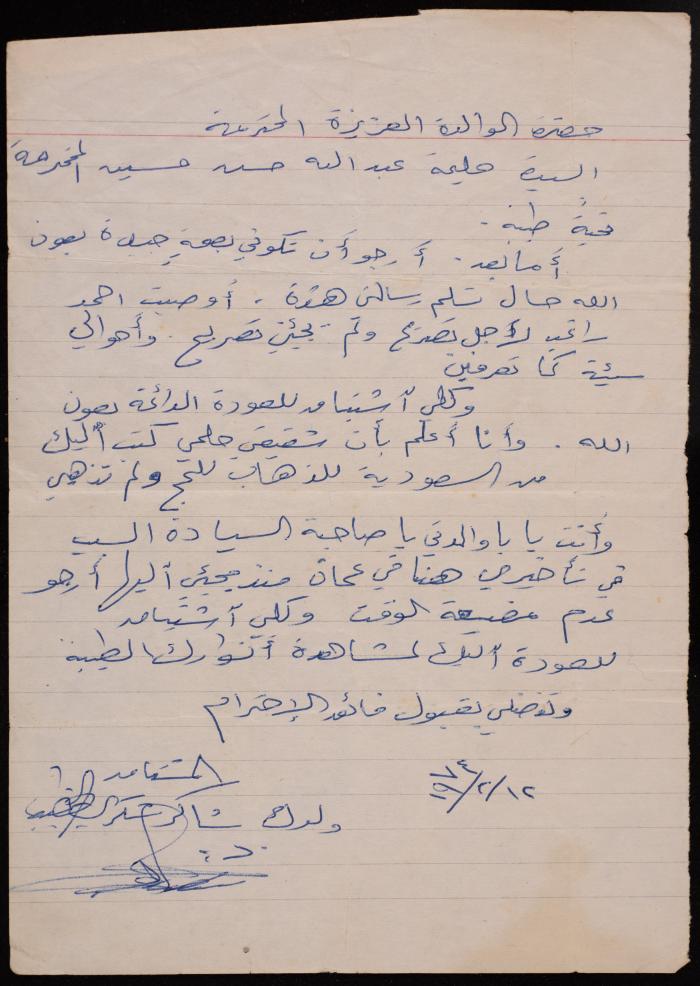 حضرة الوالدة العزيزة المحترمة
السيدة حليمة عبد الله حسن حسين المحترمة
تحيةً طيبة .
أما بعد . أرجو أن تكوني بصحةٍ جيدة بعون
الله حال تسلم رسالتي هذه . أوصيت احمد
راغب لأجل تصريح ولم يجيئني تصريح . وأحوالي
سيئة كما تعرفين
وكلي آشتياق للعودة الدائمة بعون
الله . وأنا أعلم بأن شقيقي حلمي كتب أليك
من السعودية للذهاب للحج ولم تذهبي
وأنت يا والدتي يا صاحبة السيادة السبب
في تأخيري هنا في عمان منذ مجيئي أليها أرجو
عدم مضيعة الوقت وكلي آشتياق
للعودة أليك لمشاهدة أنوارك الطيبة
وتفضلي بقبول فائق الإحترام
المشتاق
ولدك شاكر
١٢/٢/